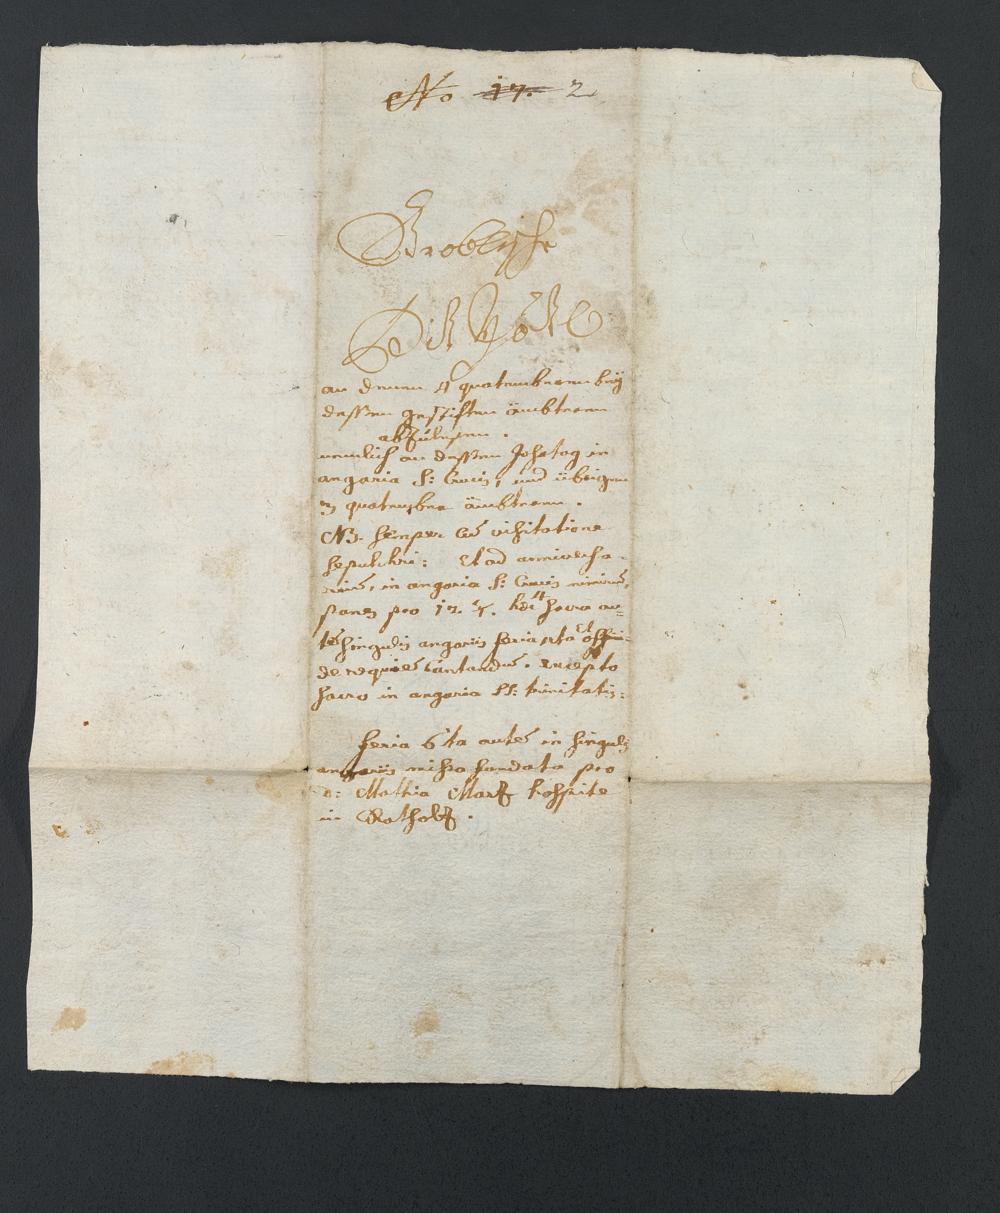 No 17. 2
Groblische
an denen 4 quatembern bey
dessen gestifften ämbteren
abzulesen.
nemlich an dessen Jahrtag in
angaria S: Crucis, und übrigen
3 quatember ämbteren.
NB. semper cum visitatione
sepulchri: Et ad anniversa-
rium, in angaria S: Crucis
panes pro 12. x. sacra an-
te singulis angariis feria et offici
de requiem cantandum. excepto
sacro in angaria SS: trinitatis:
feria 6ta autem in singulis
angariis missa fundata pro
D: Mathia Marx hospite
in